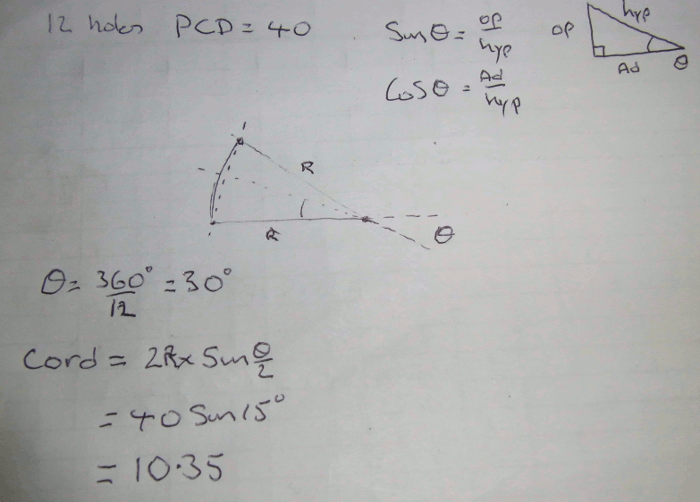 12 holes PCD = 40
Sinθ = op/hyp
Cosθ = Ad/hyp
op
hyp
Ad
θ
R
R
θ
θ = 360°/12 = 30°
Cord = 2R x Sin θ/2
= 40 Sin 15°
= 10.35